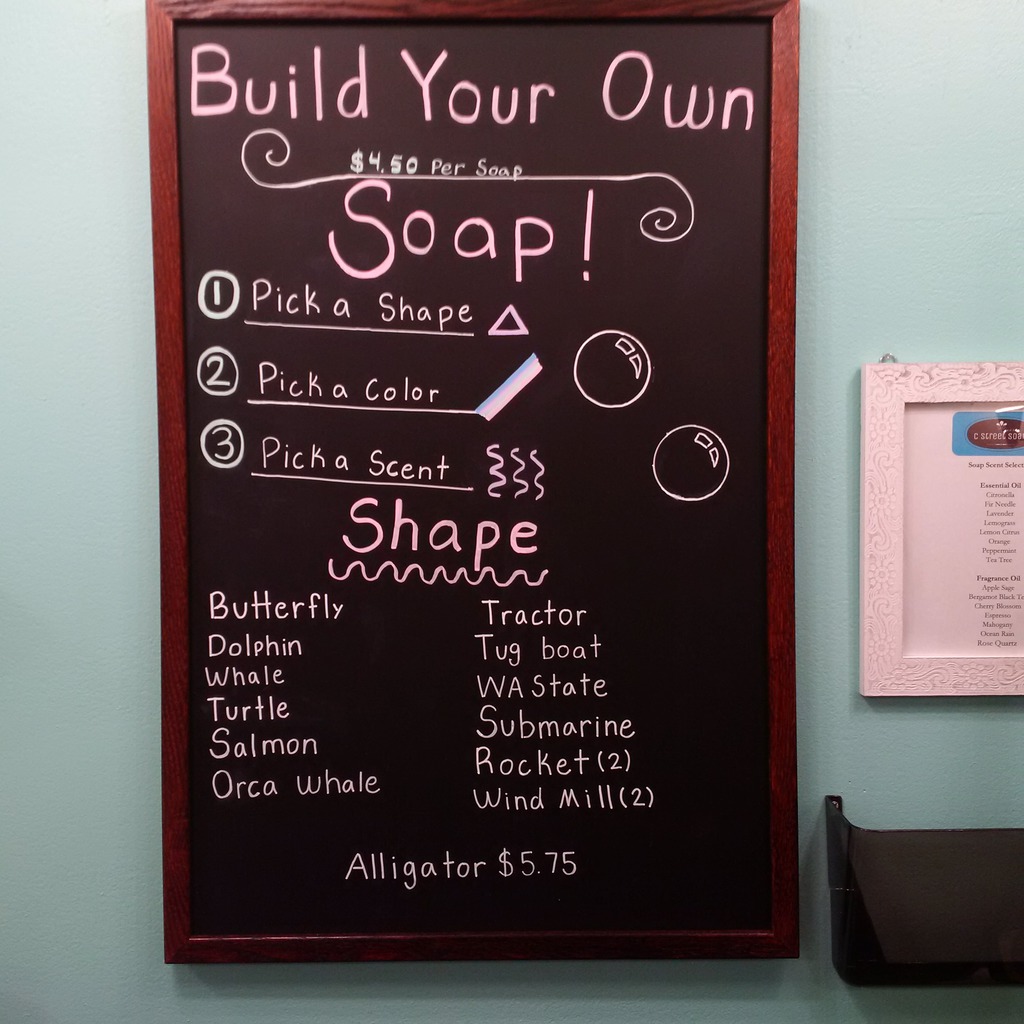 Build Your Own
$4.50 Per Soap
Soap!
1 Pick a Shape
2 Pick a Color
3 Pick a Scent
Shape
Butterfly
Dolphin
Whale
Turtle
Salmon
Orca Whale
Tractor
Tug boat
WA State
Submarine
Rocket (2)
Wind Mill (2)
Alligator $5.75
C STREET
Soap Scent
Essential Oil
Citronella
Fir Needle
Lavender
Lemongrass
Lemon Citrus
Orange
Peppermint
Tea Tree
Fragrance Oil
Apple Sage
Bergamot Black
Cherry Blossom
Espresso
Mahogany
Ocean Rain
Rose Quartz